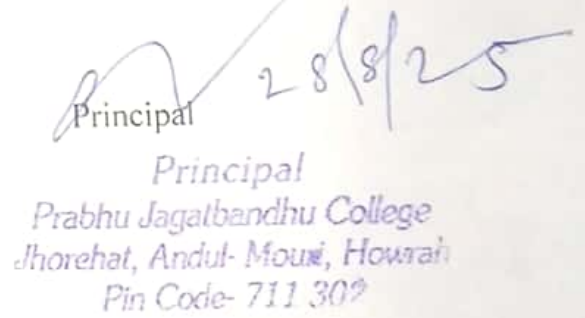 28/8/25
Principal
Principal
Prabhu Jagatbandhu College
Jhorehat, Andul-Mouri, Howrah
Pin Code- 711 302